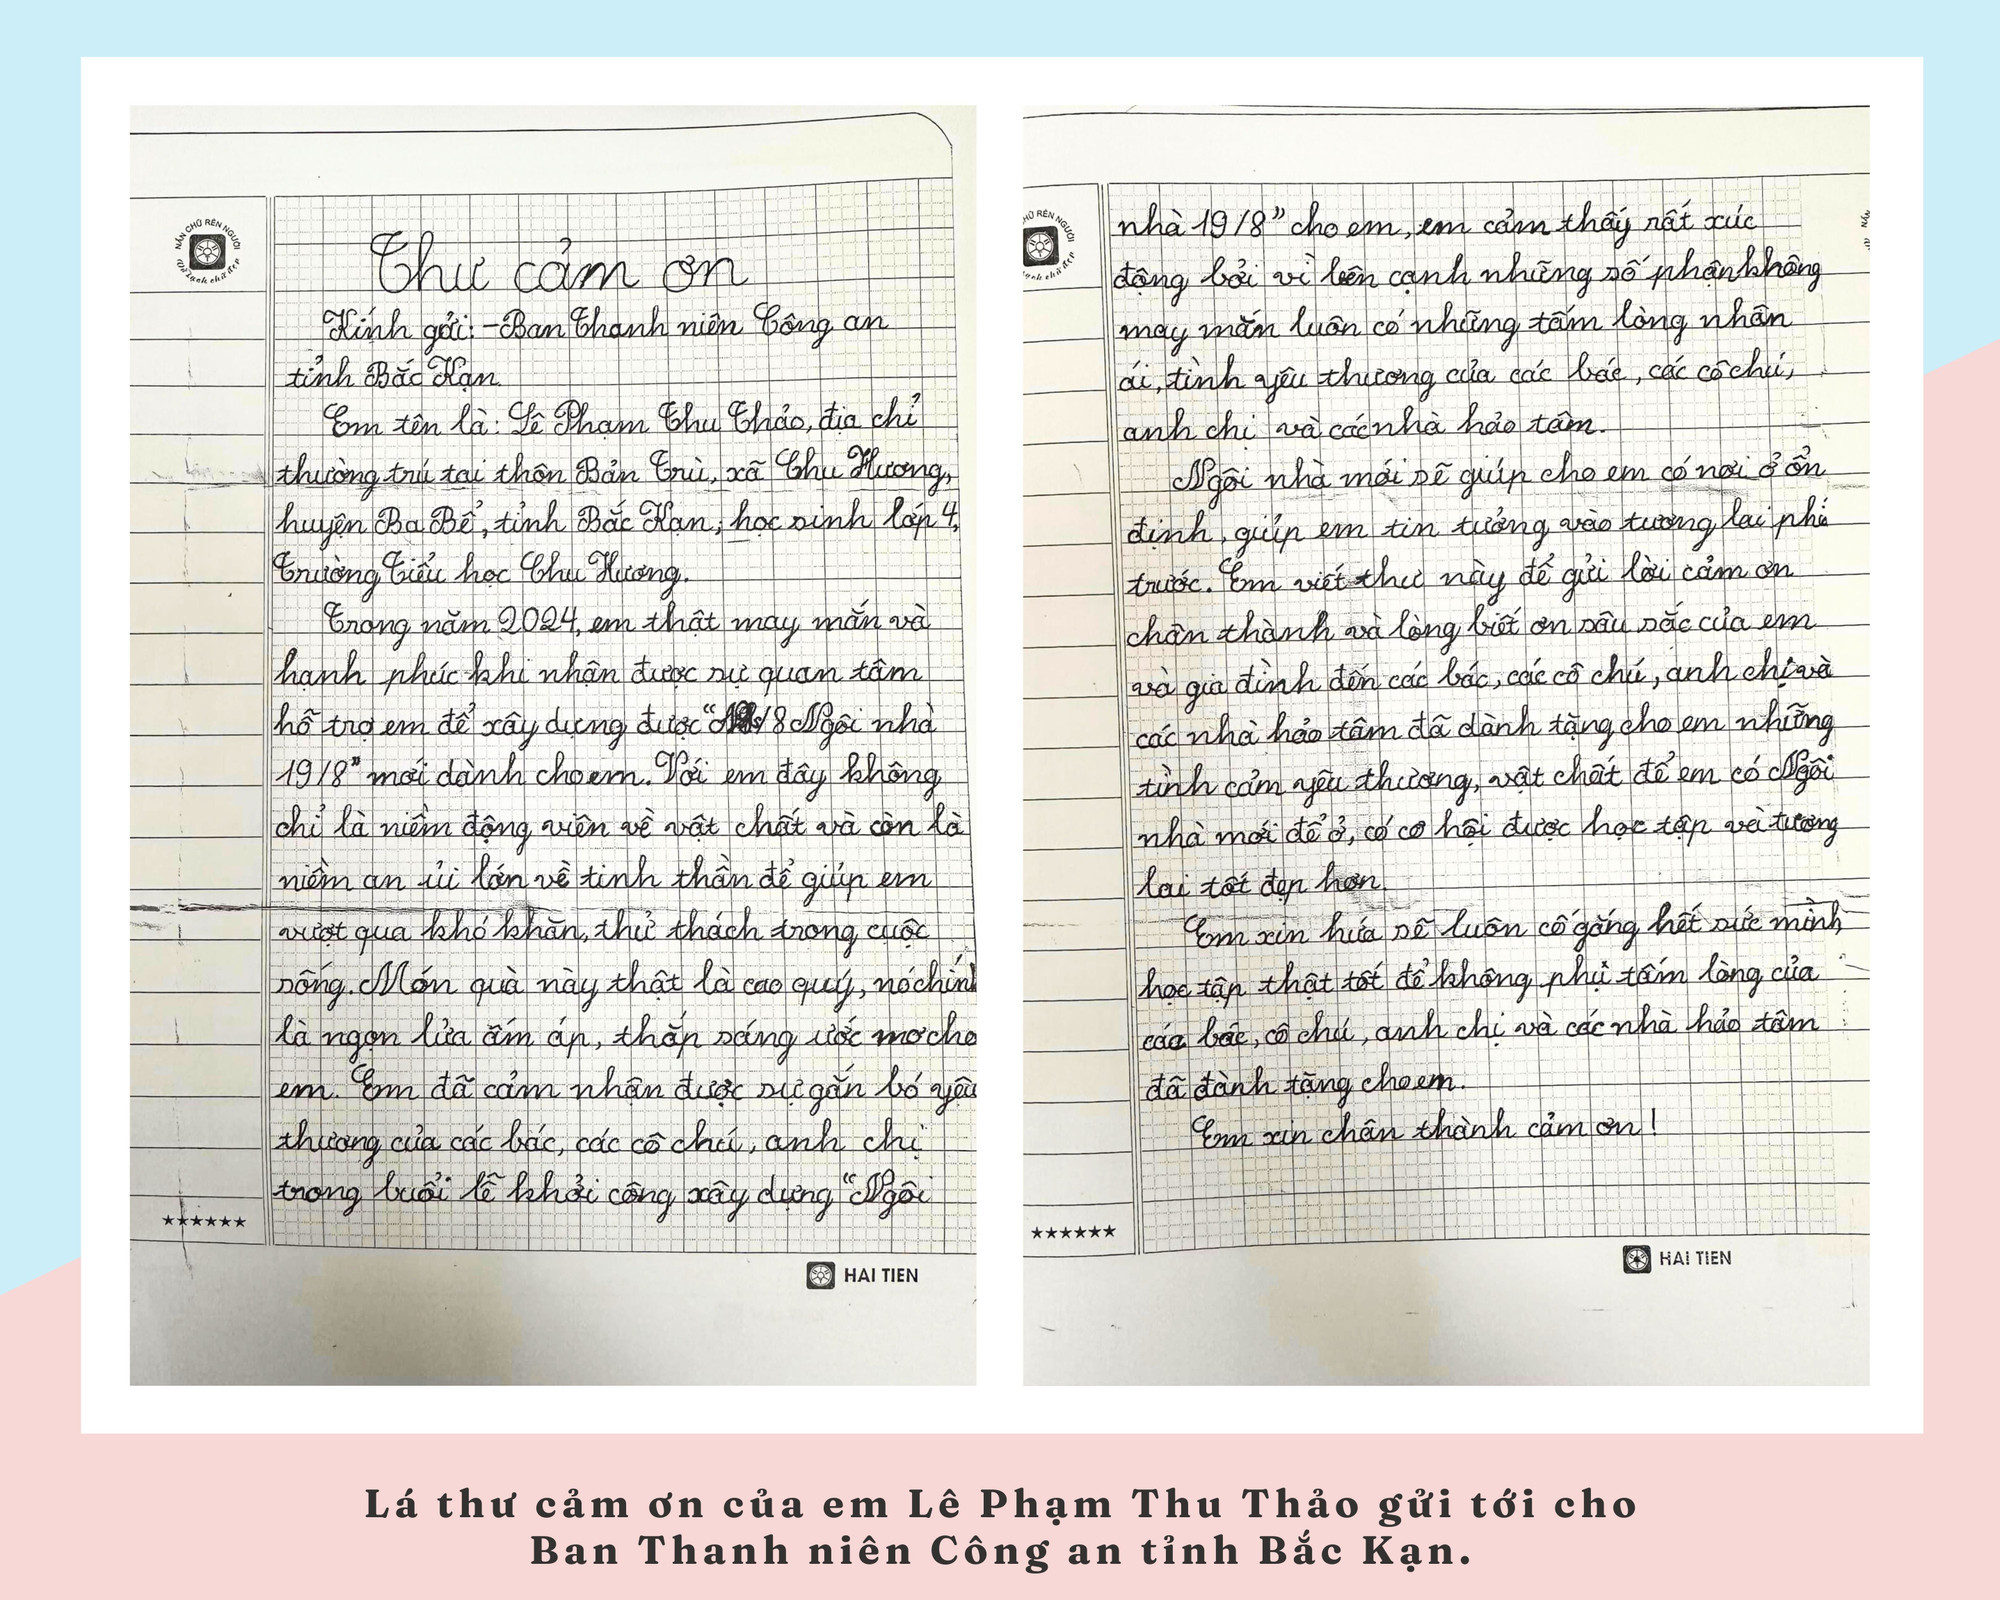 NẮN CHỮ RÈN NGƯỜI
Thư cảm ơn
Kính gởi: - Ban Thanh niên Công an
tỉnh Bắc Kạn
Em tên là: Lê Phạm Thu Thảo, địa chỉ
thường trú tại thôn Bản Trù, xã Chu Hương,
huyện Ba Bể, tỉnh Bắc Kạn, học sinh lớp 4,
Trường Tiểu học Chu Hương.
Trong năm 2024, em thật may mắn và
hạnh phúc khi nhận được sự quan tâm
hỗ trợ em để xây dựng được “ /8 Ngôi nhà
19/8” mới dành cho em. Với em đây không
chỉ là niềm động viên về vật chất và còn là
niềm an ủi lớn về tinh thần để giúp em
vượt qua khó khăn, thử thách trong cuộc
sống. Món quà này thật là cao quý, nó chính
là ngọn lửa ấm áp, thắp sáng ước mơ cho
em. Em đã cảm nhận được sự gắn bó yêu
thương của các bác, các cô chú, anh chị
trong buổi lễ khởi công xây dựng “Ngôi
★★★★★★
HAI TIEN
nhà 19/8” cho em, em cảm thấy rất xúc
động bởi vì bên cạnh những số phận không
may mắn luôn có những tấm lòng nhân
ái, tình yêu thương của các bác, các cô chú,
anh chị và các nhà hảo tâm.
Ngôi nhà mới sẽ giúp cho em có nơi ở ổn
định, giúp em tin tưởng vào tương lai phía
trước. Em viết thư này để gửi lời cảm ơn
chân thành và lòng biết ơn sâu sắc của em
và gia đình đến các bác, các cô chú, anh chị và
các nhà hảo tâm đã dành tặng cho em những
tình cảm yêu thương, vật chất để em có Ngôi
nhà mới để ở, có cơ hội được học tập và tương
lai tốt đẹp hơn.
Em xin hứa sẽ luôn cố gắng hết sức mình,
học tập thật tốt để không phụ tấm lòng của
các bác, cô chú, anh chị và các nhà hảo tâm
đã đành tặng cho em.
Em xin chân thành cảm ơn!
★★★★★★
HAI TIEN
Lá thư cảm ơn của em Lê Phạm Thu Thảo gửi tới cho
Ban Thanh niên Công an tỉnh Bắc Kạn.